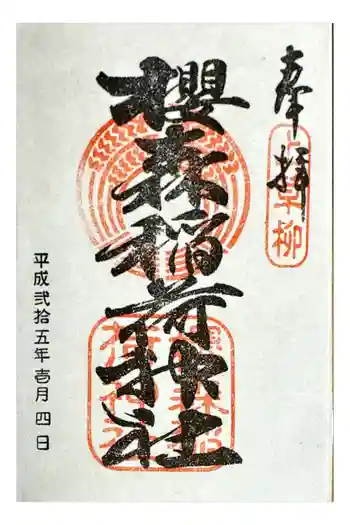 奉拝
櫻森稲荷神社
平成弐拾五年壱月四日